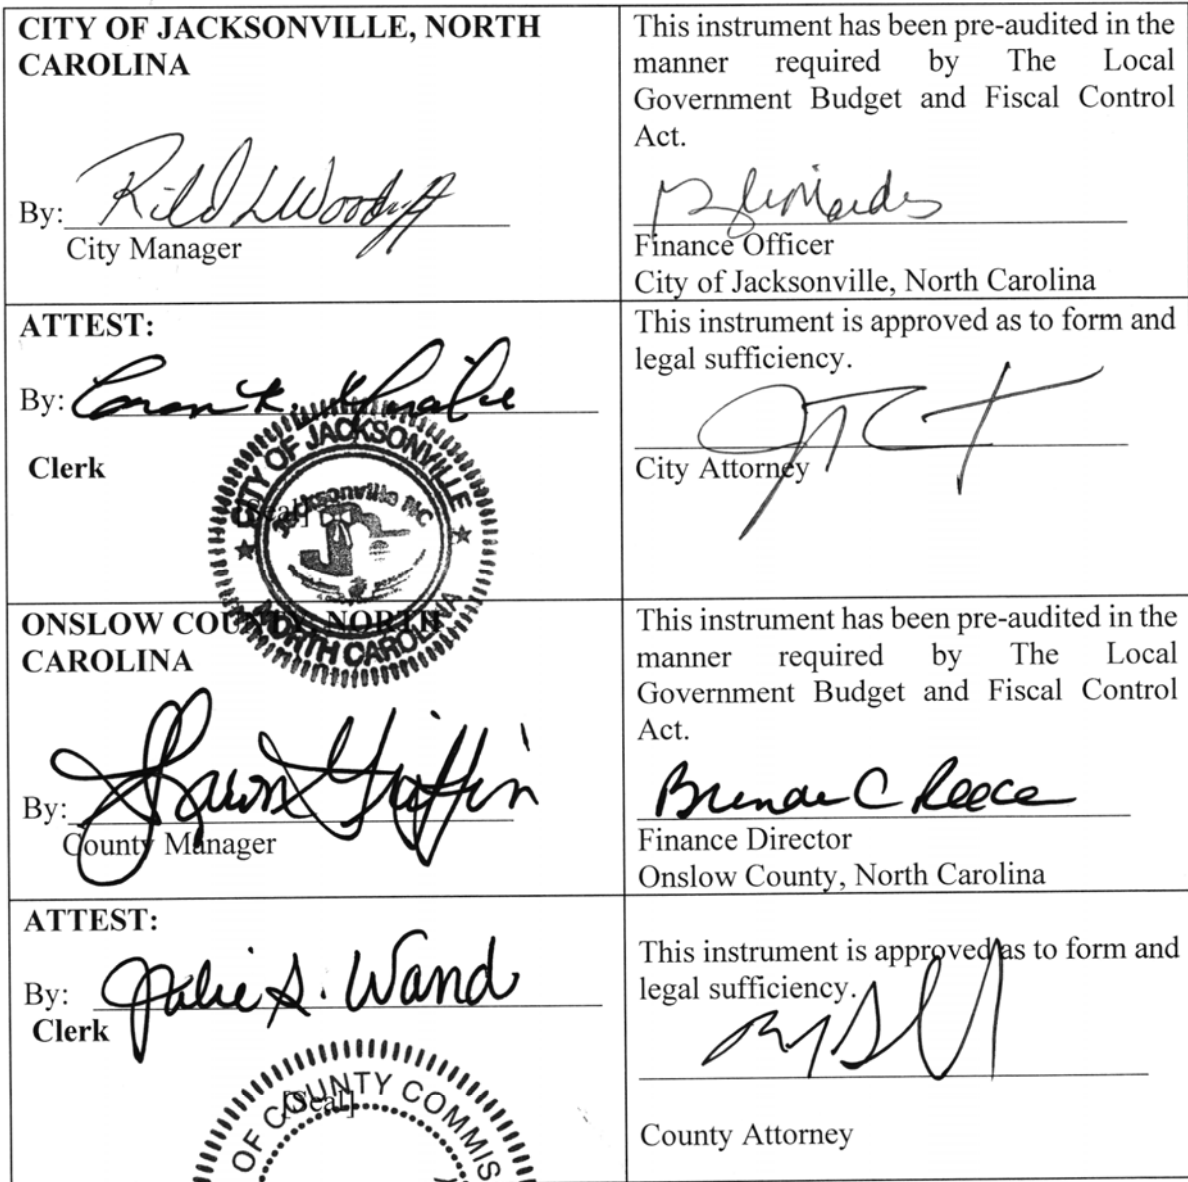 CITY OF JACKSONVILLE, NORTH
CAROLINA
By:
City Manager
This instrument has been pre-audited in the
manner required by The Local
Government Budget and Fiscal Control
Act.
Finance Officer
City of Jacksonville, North Carolina
ATTEST:
By:
Clerk
[Seal]
CITY OF JACKSONVILLE
Jacksonville NC
NORTH CAROLINA
This instrument is approved as to form and
legal sufficiency.
City Attorney
ONSLOW COUNTY, NORTH
CAROLINA
By: Sharon Griffin
County Manager
This instrument has been pre-audited in the
manner required by The Local
Government Budget and Fiscal Control
Act.
Brenda C Reece
Finance Director
Onslow County, North Carolina
ATTEST:
By: Julie S. Wand
Clerk
[Seal]
OF COUNTY COMMIS
This instrument is approved as to form and
legal sufficiency.
County Attorney